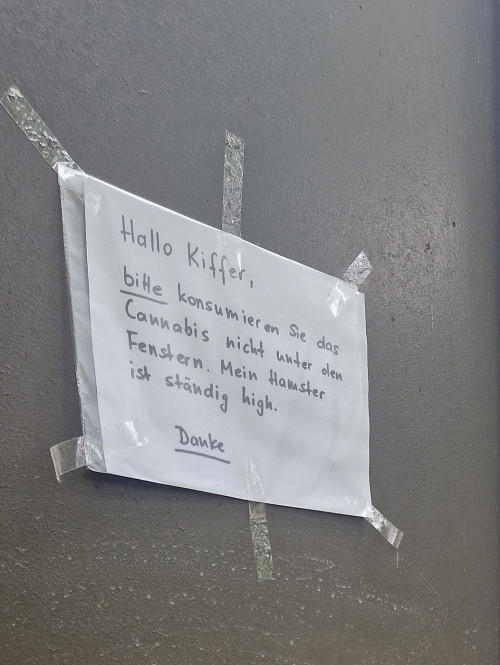 Hallo Kiffer,
bitte konsumieren Sie das
Cannabis nicht unter den
Fenstern. Mein Hamster
ist ständig high.
Danke